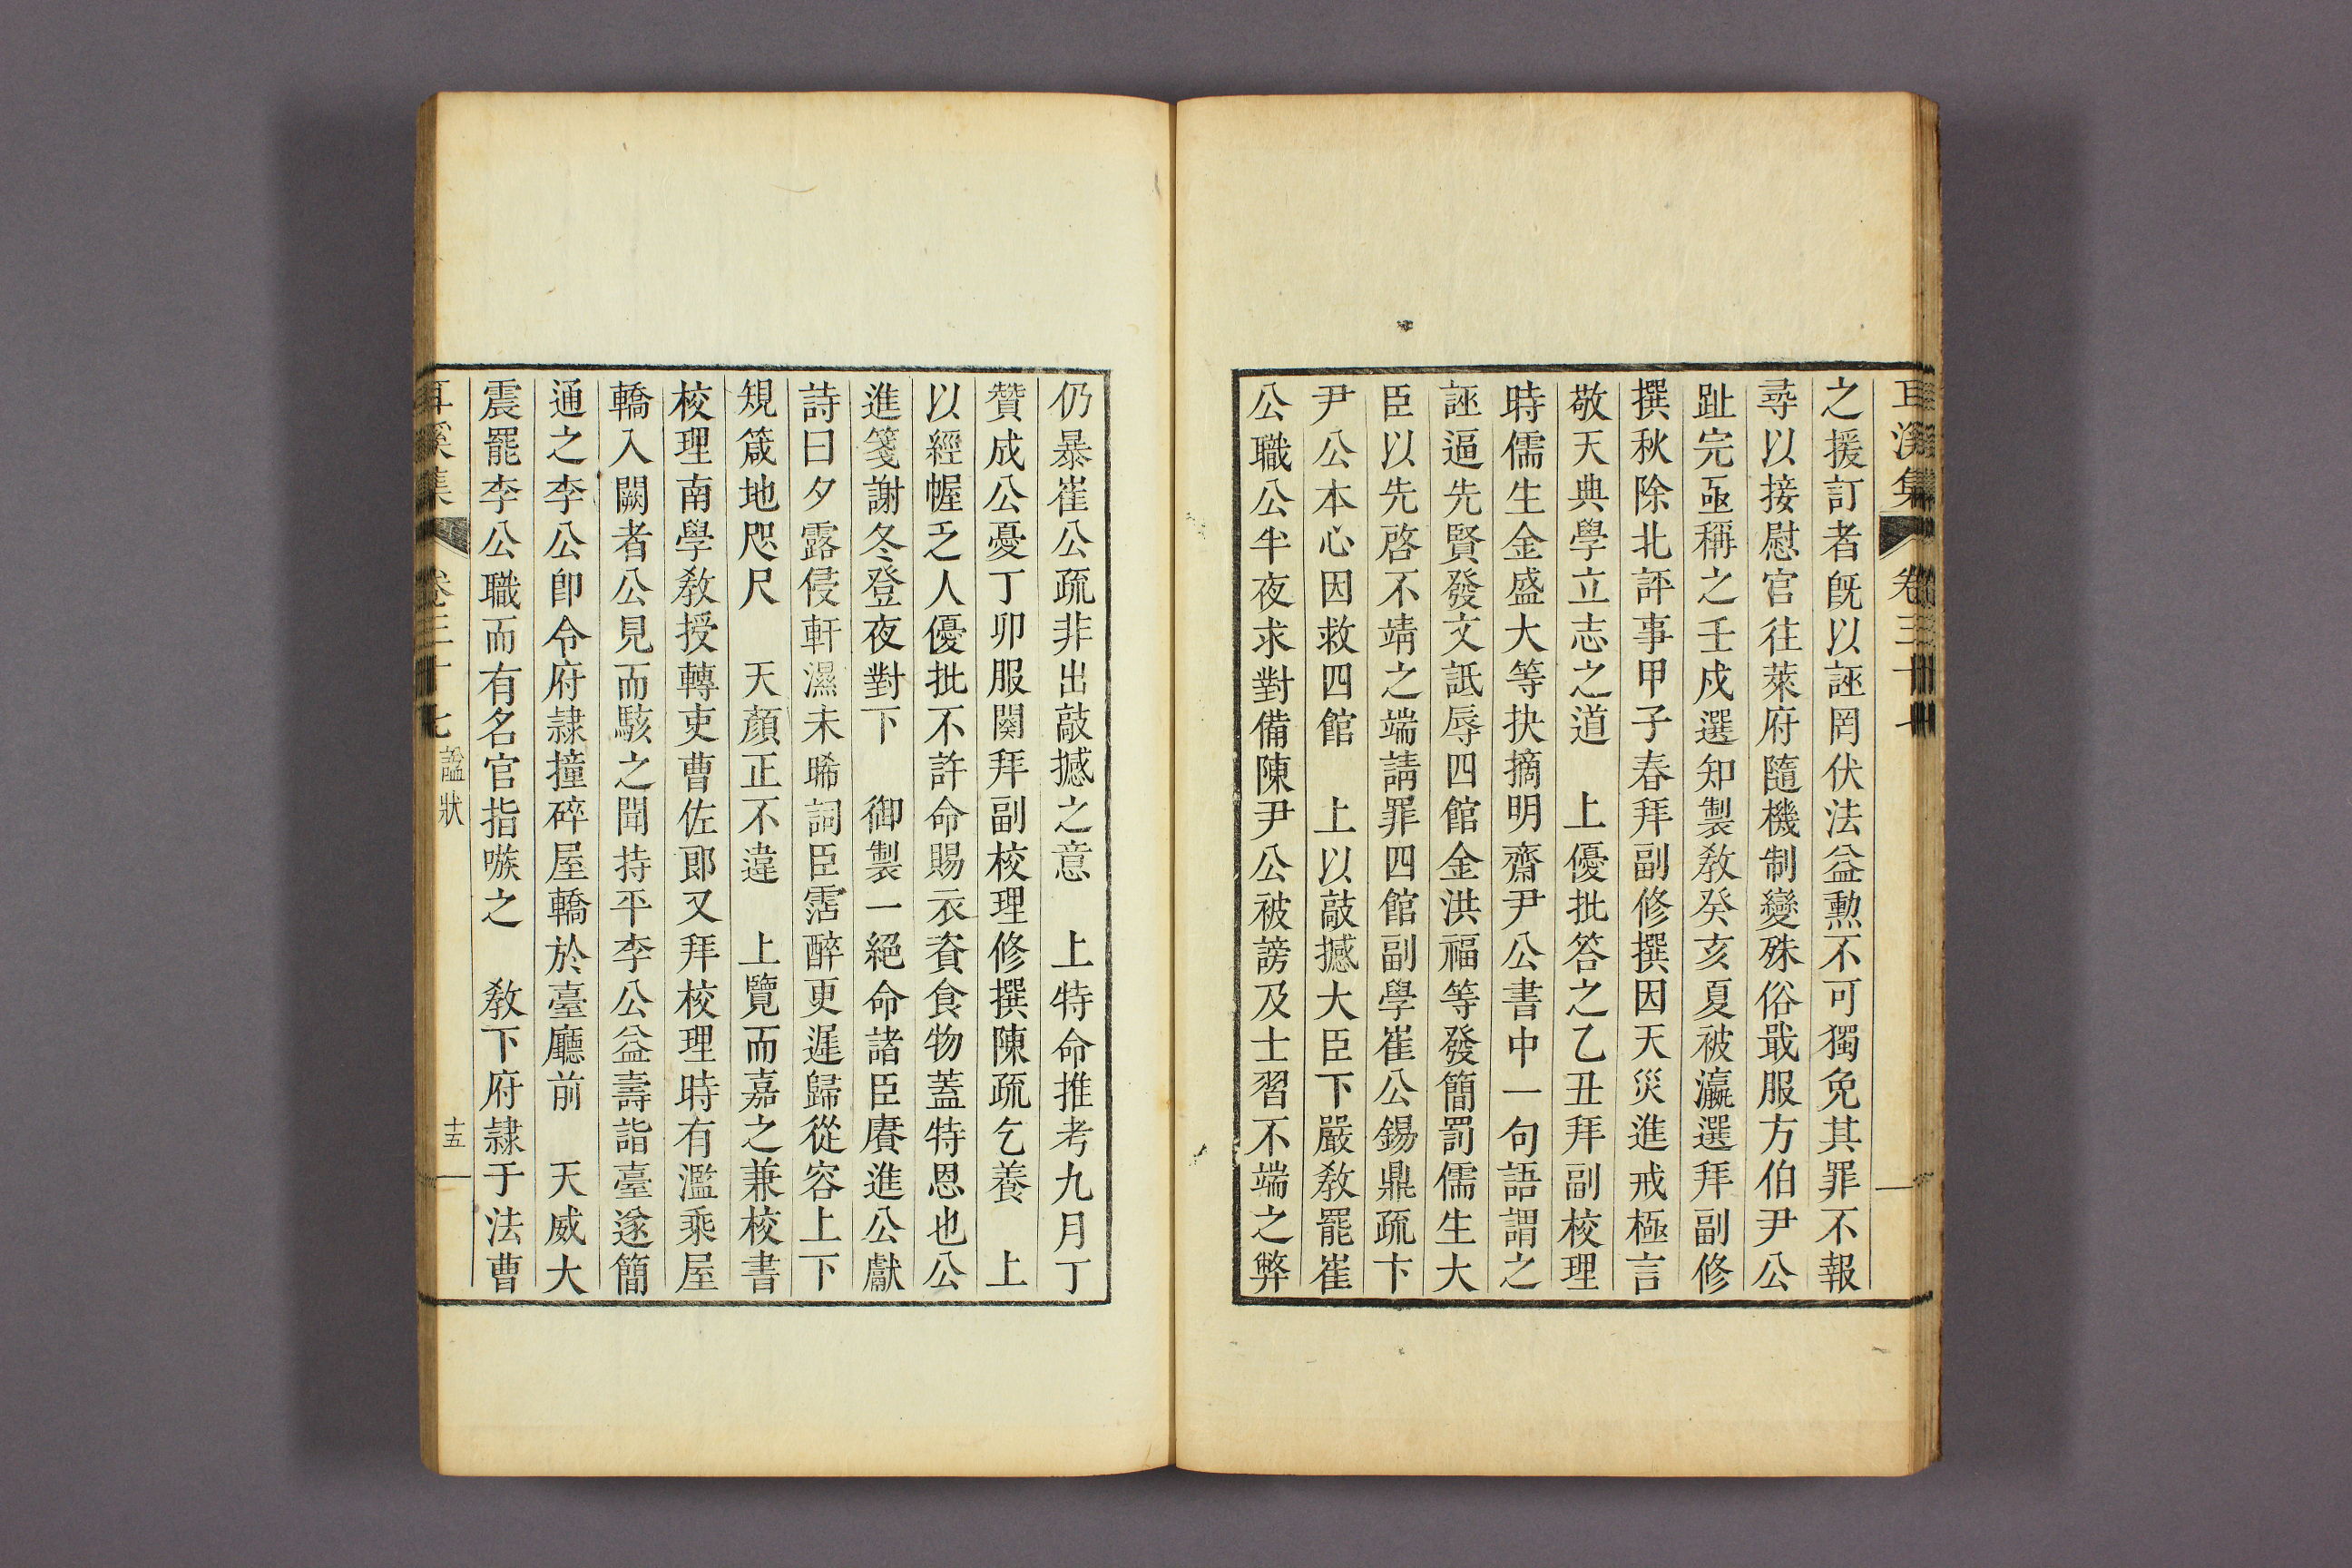 耳溪集 卷三十七
之援訂者旣以誣罔伏法益勳不可獨免其罪不報
尋以接慰官往萊府隨機制變殊俗戢服方伯尹公
趾完亟稱之壬戌選知製敎癸亥夏被瀛選拜副修
撰秋除北評事甲子春拜副修撰因天災進戒極言
敬天典學立志之道 上優批答之乙丑拜副校理
時儒生金盛大等抉摘明齋尹公書中一句語謂之
誣逼先賢發文詆辱四館金洪福等發簡罰儒生大
臣以先啓不靖之端請罪四館副學崔公錫鼎疏卞
尹公本心因救四館 上以敲撼大臣下嚴敎罷崔
公職公半夜求對備陳尹公被謗及士習不端之弊
仍暴崔公疏非出敲撼之意 上特命推考九月丁
贊成公憂丁卯服闋拜副校理修撰陳疏乞養 上
以經幄乏人優批不許命賜衣資食物蓋特恩也公
進箋謝冬登夜對下 御製一絕命諸臣賡進公獻
詩曰夕露侵軒濕未晞詞臣霑醉更遲歸從容上下
規箴地咫尺 天顏正不違 上覽而嘉之兼校書
校理南學敎授轉吏曹佐郞又拜校理時有濫乘屋
轎入闕者公見而駭之聞持平李公益壽詣臺遂簡
通之李公卽令府隷撞碎屋轎於臺廳前 天威大
震罷李公職而有名官指嗾之 敎下府隷于法曹
耳溪集 卷三十七 諡狀 十五